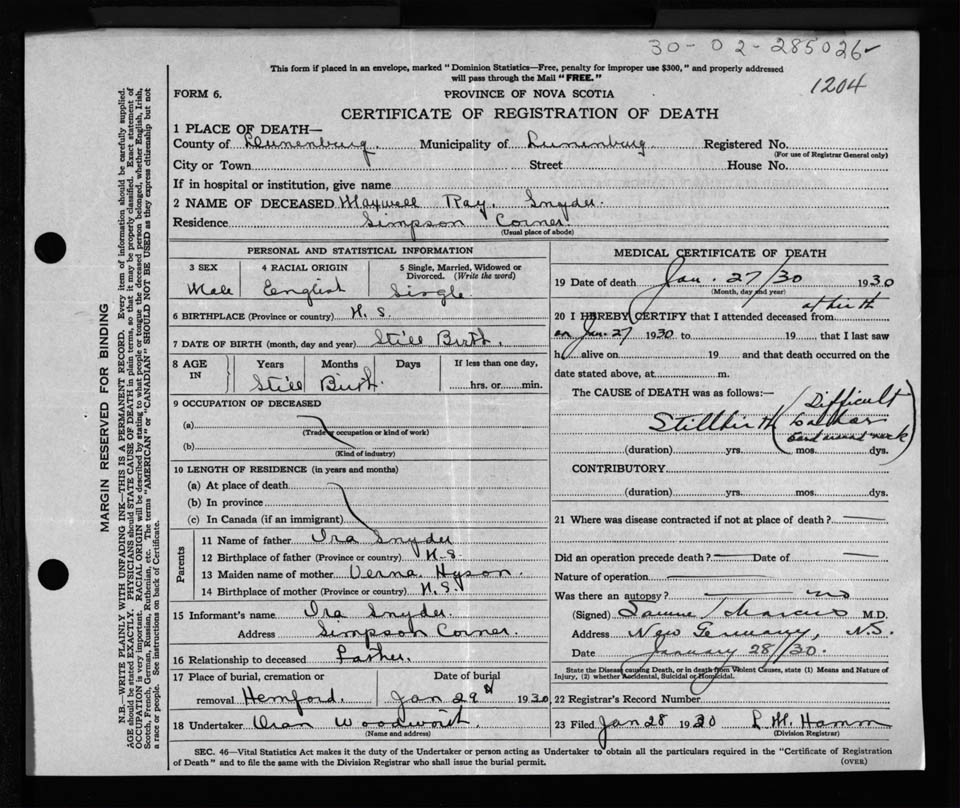 30-02-285026
1204
This form if placed in an envelope, marked "Dominion Statistics—Free, penalty for improper use $300," and properly addressed
will pass through the Mail "FREE."
FORM 6. PROVINCE OF NOVA SCOTIA
CERTIFICATE OF REGISTRATION OF DEATH
1 PLACE OF DEATH—
County of Lunenburg Municipality of Lunenburg Registered No.
(For use of Registrar General only)
City or Town Street House No.
If in hospital or institution, give name
2 NAME OF DECEASED Maxwell Ray Snyder.
Residence Simpson Corner.
(Usual place of abode)
PERSONAL AND STATISTICAL INFORMATION
3 SEX 4 RACIAL ORIGIN 5 Single, Married, Widowed or
Divorced. (Write the word)
Male English Single
6 BIRTHPLACE (Province or country) N.S.
7 DATE OF BIRTH (month, day and year) Still Birth.
8 AGE IN Years Months Days If less than one day,
Still Birth. hrs. or min.
9 OCCUPATION OF DECEASED
(a)
(Trade or occupation or kind of work)
(b)
(Kind of industry)
10 LENGTH OF RESIDENCE (in years and months)
(a) At place of death
(b) In province
(c) In Canada (if an immigrant)
Parents
11 Name of father Ira Snyder
12 Birthplace of father (Province or country) N.S.
13 Maiden name of mother Verna Hyson.
14 Birthplace of mother (Province or country) N.S.
15 Informant's name Ira Snyder.
Address Simpson Corner.
16 Relationship to deceased Father.
17 Place of burial, cremation or Date of burial
removal Hemford. Jan 29th 1930
18 Undertaker Woodworth
(Name and address)
MEDICAL CERTIFICATE OF DEATH
19 Date of death Jan. 27/30 1930
(Month, day and year)
20 I HEREBY CERTIFY that I attended deceased from at birth
on Jan. 27 1930 to 19 , that I last saw
h alive on 19 and that death occurred on the
date stated above, at m.
The CAUSE of DEATH was as follows:—
Stillbirth (Difficult
Labor
Cord around neck)
(duration) yrs. mos. dys.
CONTRIBUTORY
(duration) yrs. mos. dys.
21 Where was disease contracted if not at place of death?
Did an operation precede death? Date of
Nature of operation
Was there an autopsy? no
(Signed) M.D.
Address New Germany, N.S.
Date January 28/30.
State the Disease causing Death, or in death from Violent Causes, state (1) Means and Nature of
Injury, (2) whether Accidental, Suicidal or Homicidal.
22 Registrar's Record Number
23 Filed Jan 28 1930 Hamm
(Division Registrar)
SEC. 46—Vital Statistics Act makes it the duty of the Undertaker or person acting as Undertaker to obtain all the particulars required in the "Certificate of Registration
of Death" and to file the same with the Division Registrar who shall issue the burial permit. (OVER)
MARGIN RESERVED FOR BINDING
N.B.—WRITE PLAINLY WITH UNFADING INK—THIS IS A PERMANENT RECORD. Every item of information should be carefully supplied.
AGE should be stated EXACTLY. PHYSICIANS should STATE CAUSE OF DEATH in plain terms, so that it may be properly classified. Exact statement of
OCCUPATION is very important. RACIAL ORIGIN will be described by stating to what people or tongue the deceased person belonged, whether English, Irish,
Scotch, French, German, Russian, Ruthenian, etc. The terms "AMERICAN" or "CANADIAN" SHOULD NOT BE USED as they express citizenship but not
a race or people. See instructions on back of Certificate.